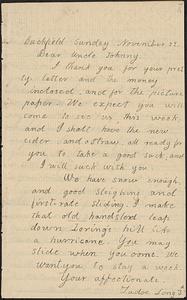 Buckfield Sunday November 22.
Dear Uncle Johnny.
I thank you for your pret-
ty letter and the money
inclosed, and for the picture
paper. We expect you will
come to see us this week,
and I shall have the new
cider, and a straw all ready for
you to take a good suck, and
I will suck with you
We have snow enough,
and good sleighing and
first-rate sliding. I make
that old handsled leap
down Loring's hill like
a hurricane. You may
slide when you come. We
want you to stay a week.
Your affectionate
Long